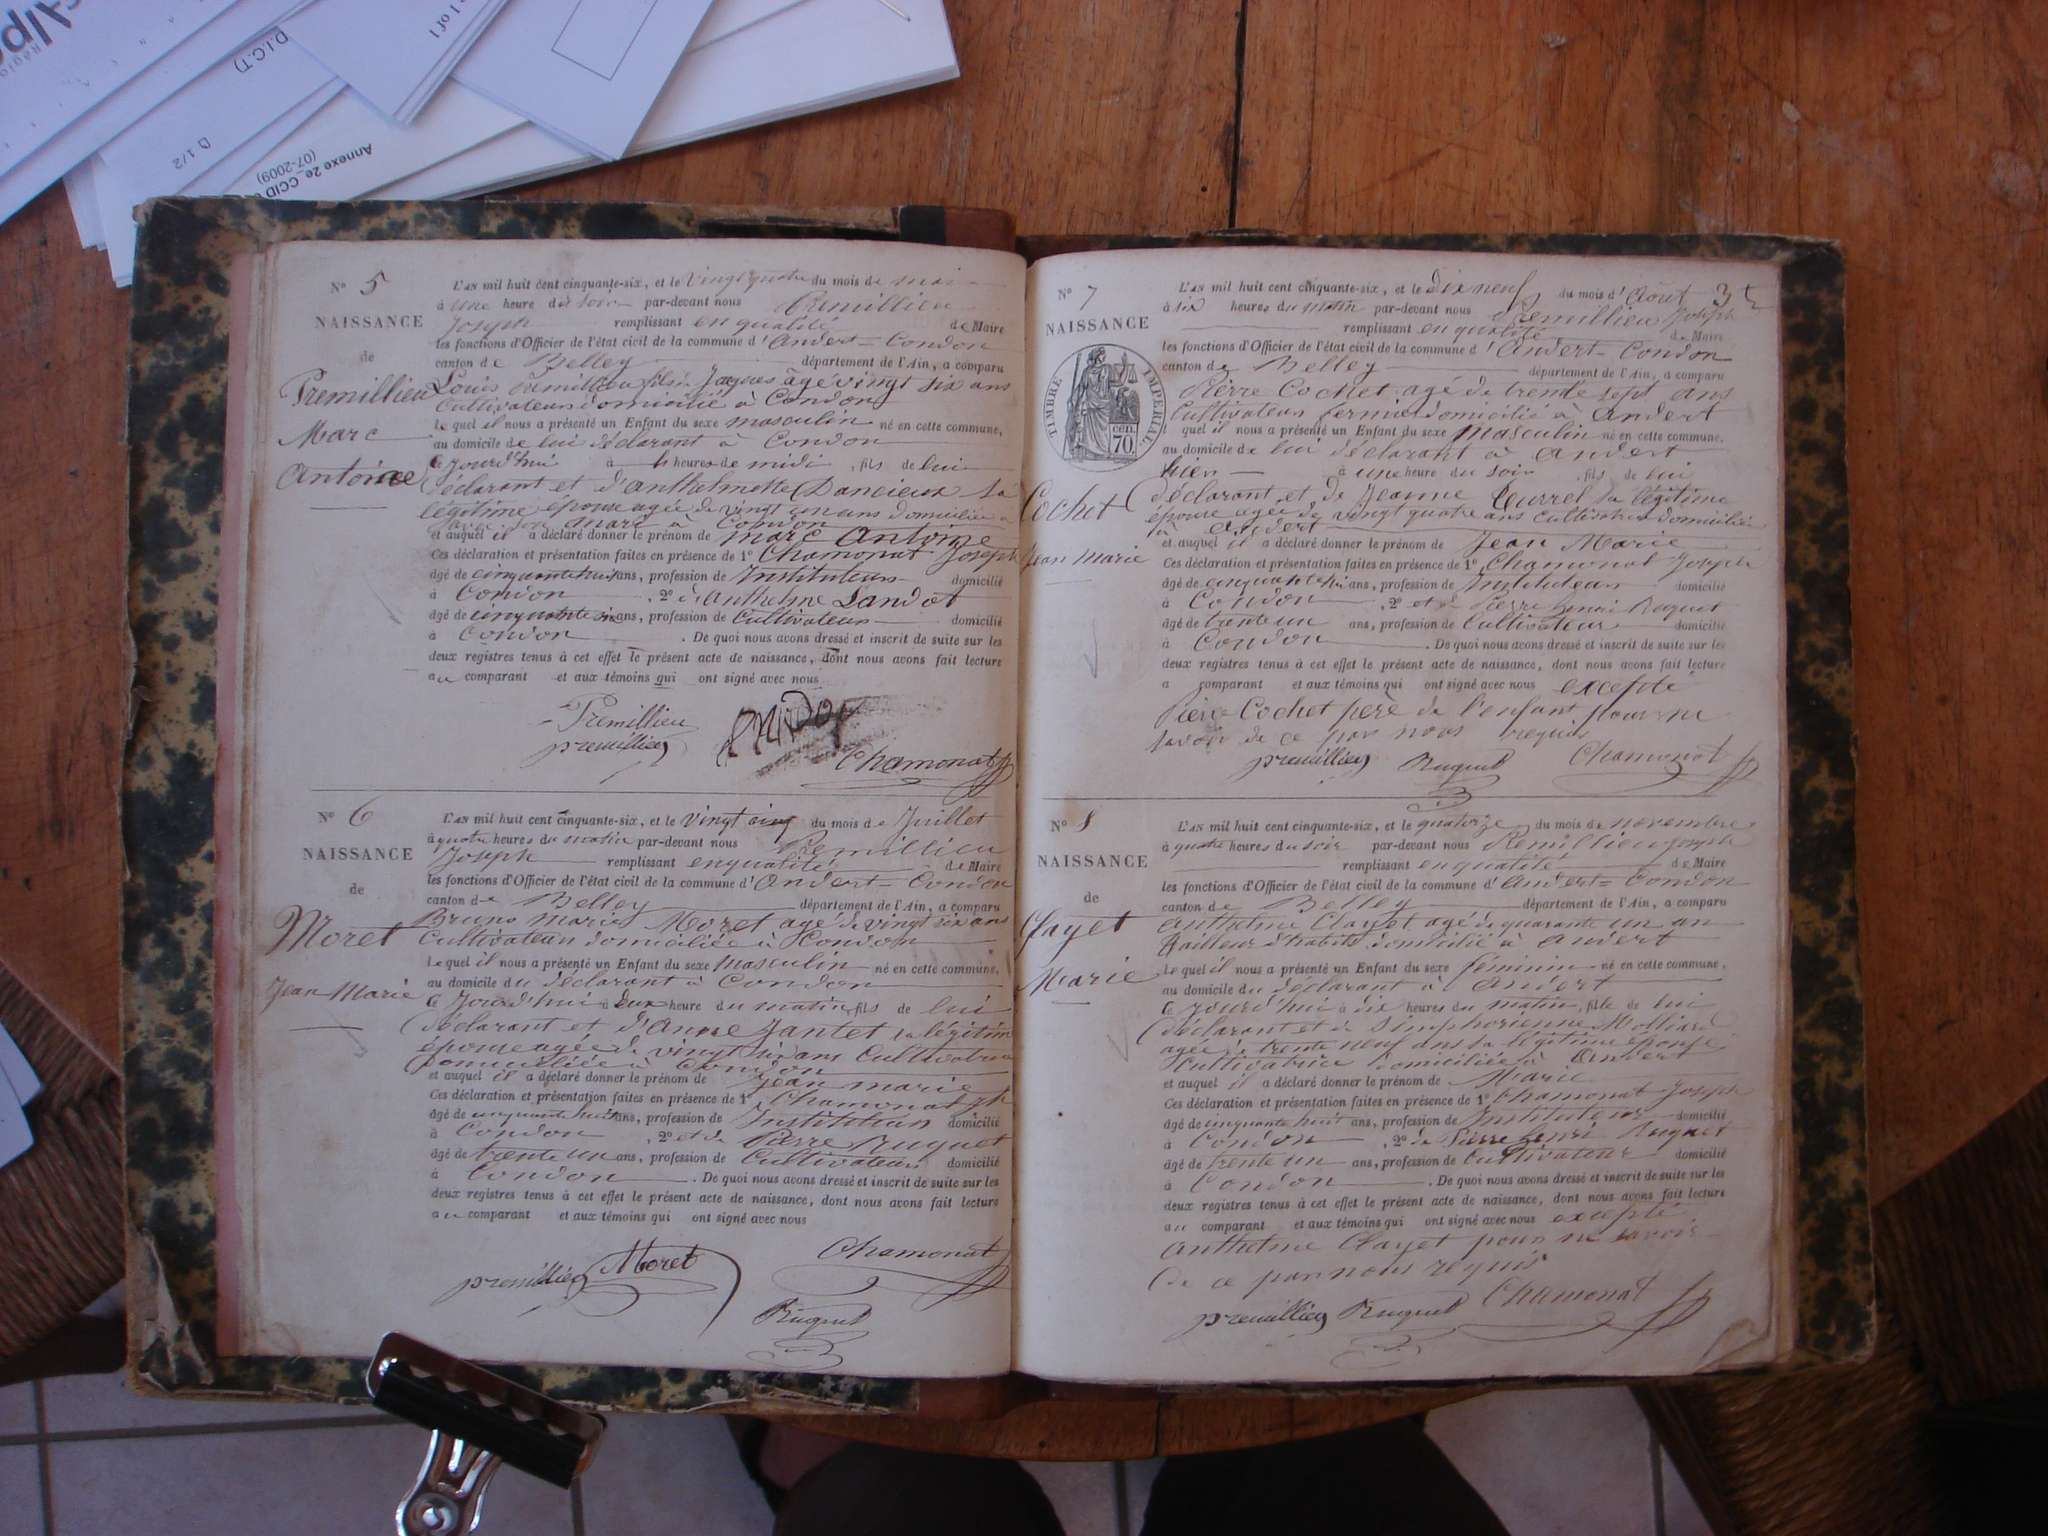 1 of 1
D.I.C.T)
1/2
Annexe 2e_CCID
(07-2009)
N° 5
NAISSANCE
de
Premillieu
Marc
Antoine
L'AN mil huit cent cinquante-six, et le vingt quatre du mois de mai
à une heure du soir par-devant nous Premillieu
Joseph remplissant en qualité de Maire
les fonctions d'Officier de l'état civil de la commune d'Andert-Condon
canton de Belley département de l'Ain, a comparu
Louis premillieu fils de Jaques âgé vingt six ans
Cultivateur domicilié à Condon
Le quel il nous a présenté un Enfant du sexe masculin né en cette commune,
au domicile de lui déclarant à Condon
ce jourd'hui à heures de midi, fils de lui
déclarant et d'anthelmette Dancieux sa
légitime épouse agée de vingt ans domiciliée
avec son mari à Condon
et auquel il a déclaré donner le prénom de marc Antoine
Ces déclaration et présentation faites en présence de 1° Chamonat Joseph
âgé de cinquante huit ans, profession de Instituteur domicilié
à Condon, 2° d'anthelme Landot
âgé de cinquante six ans, profession de Cultivateur domicilié
à Condon. De quoi nous avons dressé et inscrit de suite sur les
deux registres tenus à cet effet le présent acte de naissance, dont nous avons fait lecture
au comparant et aux témoins qui ont signé avec nous
Premillieu
premillieu
Chamonat
N° 6
NAISSANCE
de
Moret
Jean Marie
L'AN mil huit cent cinquante-six, et le vingt cinq du mois de Juillet
à quatre heures du matin par-devant nous Premillieu
Joseph remplissant en qualité de Maire
les fonctions d'Officier de l'état civil de la commune d'Andert-Condon
canton de Belley département de l'Ain, a comparu
Bruno Marie Moret agé de vingt six ans
Cultivateur domiciliée à Condon
Le quel il nous a présenté un Enfant du sexe masculin né en cette commune,
au domicile du déclarant à Condon
ce jourd'hui à deux heure du matin, fils de lui
déclarant et d'Anne Jantet sa légitime
épouse agée de vingt six ans Cultivatrice
domiciliée à Condon
et auquel il a déclaré donner le prénom de Jean marie
Ces déclaration et présentation faites en présence de 1° Chamonat Jph
âgé de cinquante huit ans, profession de Instituteur domicilié
à Condon, 2° et de Pierre Ruguet
âgé de trente un ans, profession de Cultivateur domicilié
à Condon. De quoi nous avons dressé et inscrit de suite sur les
deux registres tenus à cet effet le présent acte de naissance, dont nous avons fait lecture
au comparant et aux témoins qui ont signé avec nous
premillieu Moret Chamonat
Ruguet
N° 7
NAISSANCE
TIMBRE IMPÉRIAL
70 cen.
Cochet
Jean Marie
L'AN mil huit cent cinquante-six, et le Dix neuf du mois d'Août
à six heures du matin par-devant nous Premillieu Joseph
remplissant en qualité de Maire
les fonctions d'Officier de l'état civil de la commune d'Andert-Condon
canton de Belley département de l'Ain, a comparu
Pierre Cochet agé de trente sept ans
Cultivateur fermier domicilié à Andert
quel il nous a présenté un Enfant du sexe Masculin né en cette commune,
au domicile de lui déclarant à Andert
hier à une heure du soir, fils de lui
déclarant et de Jeanne sa légitime
épouse agée de vingt quatre ans cultivatrice domiciliée
à Andert
et auquel il a déclaré donner le prénom de Jean Marie
Ces déclaration et présentation faites en présence de 1° Chamonat Joseph
âgé de cinquante hui ans, profession de Instituteur domicilié
à Condon, 2° et de Pierre henri Ruguet
âgé de trente un ans, profession de Cultivateur domicilié
à Condon. De quoi nous avons dressé et inscrit de suite sur les
deux registres tenus à cet effet le présent acte de naissance, dont nous avons fait lecture
a comparant et aux témoins qui ont signé avec nous excepté
Pierre Cochet père de l'enfant pour ne
savoir de ce par nous requis
premillieu Ruguet Chamonat
N° 8
NAISSANCE
de
Clayet
Marie
L'AN mil huit cent cinquante-six, et le quatorze du mois de novembre
à quatre heures du soir par-devant nous Premillieu Joseph
remplissant en qualité de Maire
les fonctions d'Officier de l'état civil de la commune d'Andert-Condon
canton de Belley département de l'Ain, a comparu
Anthelme Clayet agé de quarante un an
tailleur d'habits domicilié à Andert
Le quel il nous a présenté un Enfant du sexe féminin né en cette commune,
au domicile du déclarant à Andert
ce jourd'hui à dix heures du matin, fille de lui
déclarant et de Simphorienne Molliard
agée de trente neuf ans sa légitime épouse
Cultivatrice domiciliée à Andert
et auquel il a déclaré donner le prénom de Marie
Ces déclaration et présentation faites en présence de 1° Chamonat Joseph
âgé de cinquante huit ans, profession de Instituteur domicilié
à Condon, 2° de Pierre henri Ruguet
âgé de trente un ans, profession de Cultivateur domicilié
à Condon. De quoi nous avons dressé et inscrit de suite sur les
deux registres tenus à cet effet le présent acte de naissance, dont nous avons fait lecture
au comparant et aux témoins qui ont signé avec nous excepté
Anthelme Clayet pour ne savoir
de ce par nous requis
premillieu Ruguet Chamonat